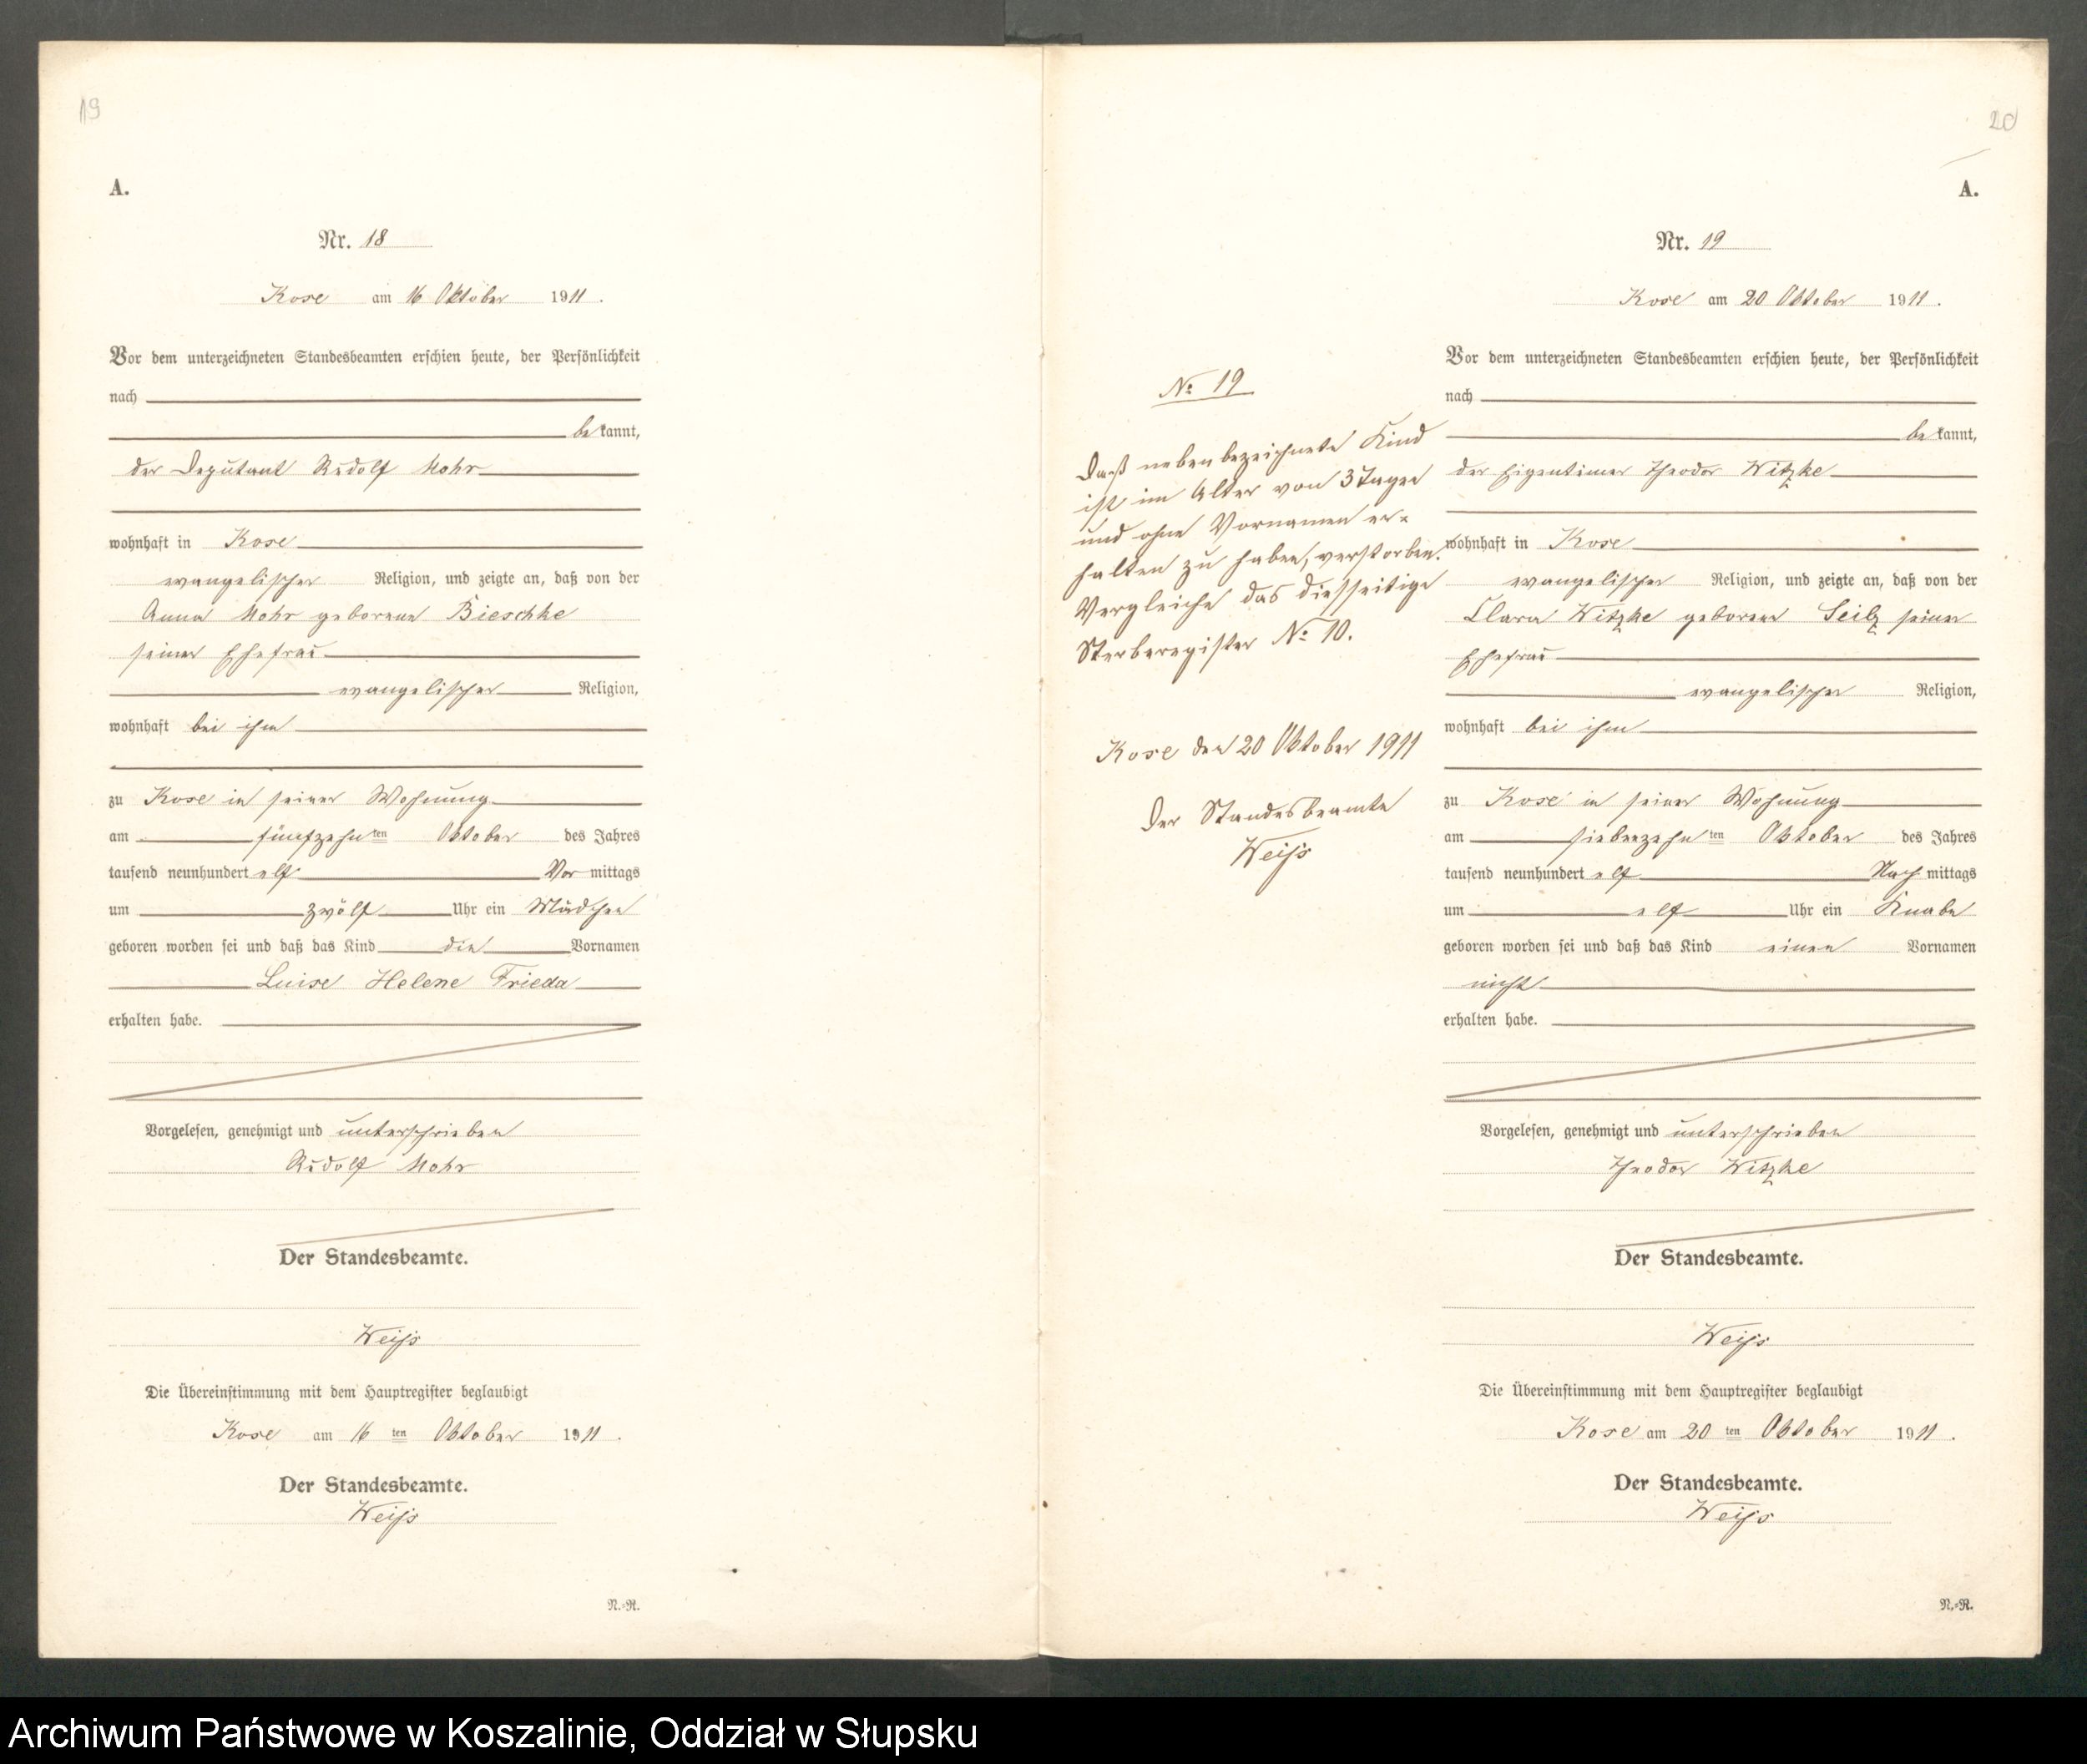 19
A.
Nr. 18
Kose am 16 Oktober 1911.
Vor dem unterzeichneten Standesbeamten erschien heute, der Persönlichkeit
nach
bekannt,
der Deputant Rudolf Mohr
wohnhaft in Kose
evangelischer Religion, und zeigte an, daß von der
Anna Mohr geborenen Bieschke
seiner Ehefrau
evangelischer Religion,
wohnhaft bei ihm
zu Kose in seiner Wohnung
am fünfzehnten Oktober des Jahres
tausend neunhundert elf Vormittags
um zwölf Uhr ein Mädchen
geboren worden sei und daß das Kind die Vornamen
Luise Helene Frieda
erhalten habe.
Vorgelesen, genehmigt und unterschrieben
Rudolf Mohr
Der Standesbeamte.
Weiss
Die Übereinstimmung mit dem Hauptregister beglaubigt
Kose am 16 ten Oktober 1911.
Der Standesbeamte.
Weiss
N.-R.
20
A.
Nr. 19
Kose am 20 Oktober 1911.
Vor dem unterzeichneten Standesbeamten erschien heute, der Persönlichkeit
nach
bekannt,
der Eigentümer Theodor Witzke
wohnhaft in Kose
evangelischer Religion, und zeigte an, daß von der
Clara Witzke geborenen Seils seiner
Ehefrau
evangelischer Religion,
wohnhaft bei ihm
zu Kose in seiner Wohnung
am siebenzehnten Oktober des Jahres
tausend neunhundert elf Nachmittags
um elf Uhr ein Knabe
geboren worden sei und daß das Kind einen Vornamen
nicht
erhalten habe.
Vorgelesen, genehmigt und unterschrieben
Theodor Witzke
Der Standesbeamte.
Weiss
Die Übereinstimmung mit dem Hauptregister beglaubigt
Kose am 20 ten Oktober 1911.
Der Standesbeamte.
Weiss
N.-R.
No 19
Das nebenbezeichnete Kind
ist im Alter von 3 Tagen
und ohne Vornamen er-
halten zu haben, verstorben.
Vergleiche das diesseitige
Sterberegister No 10.
Kose den 20 Oktober 1911
Der Standesbeamte
Weiss
Archiwum Państwowe w Koszalinie, Oddział w Słupsku